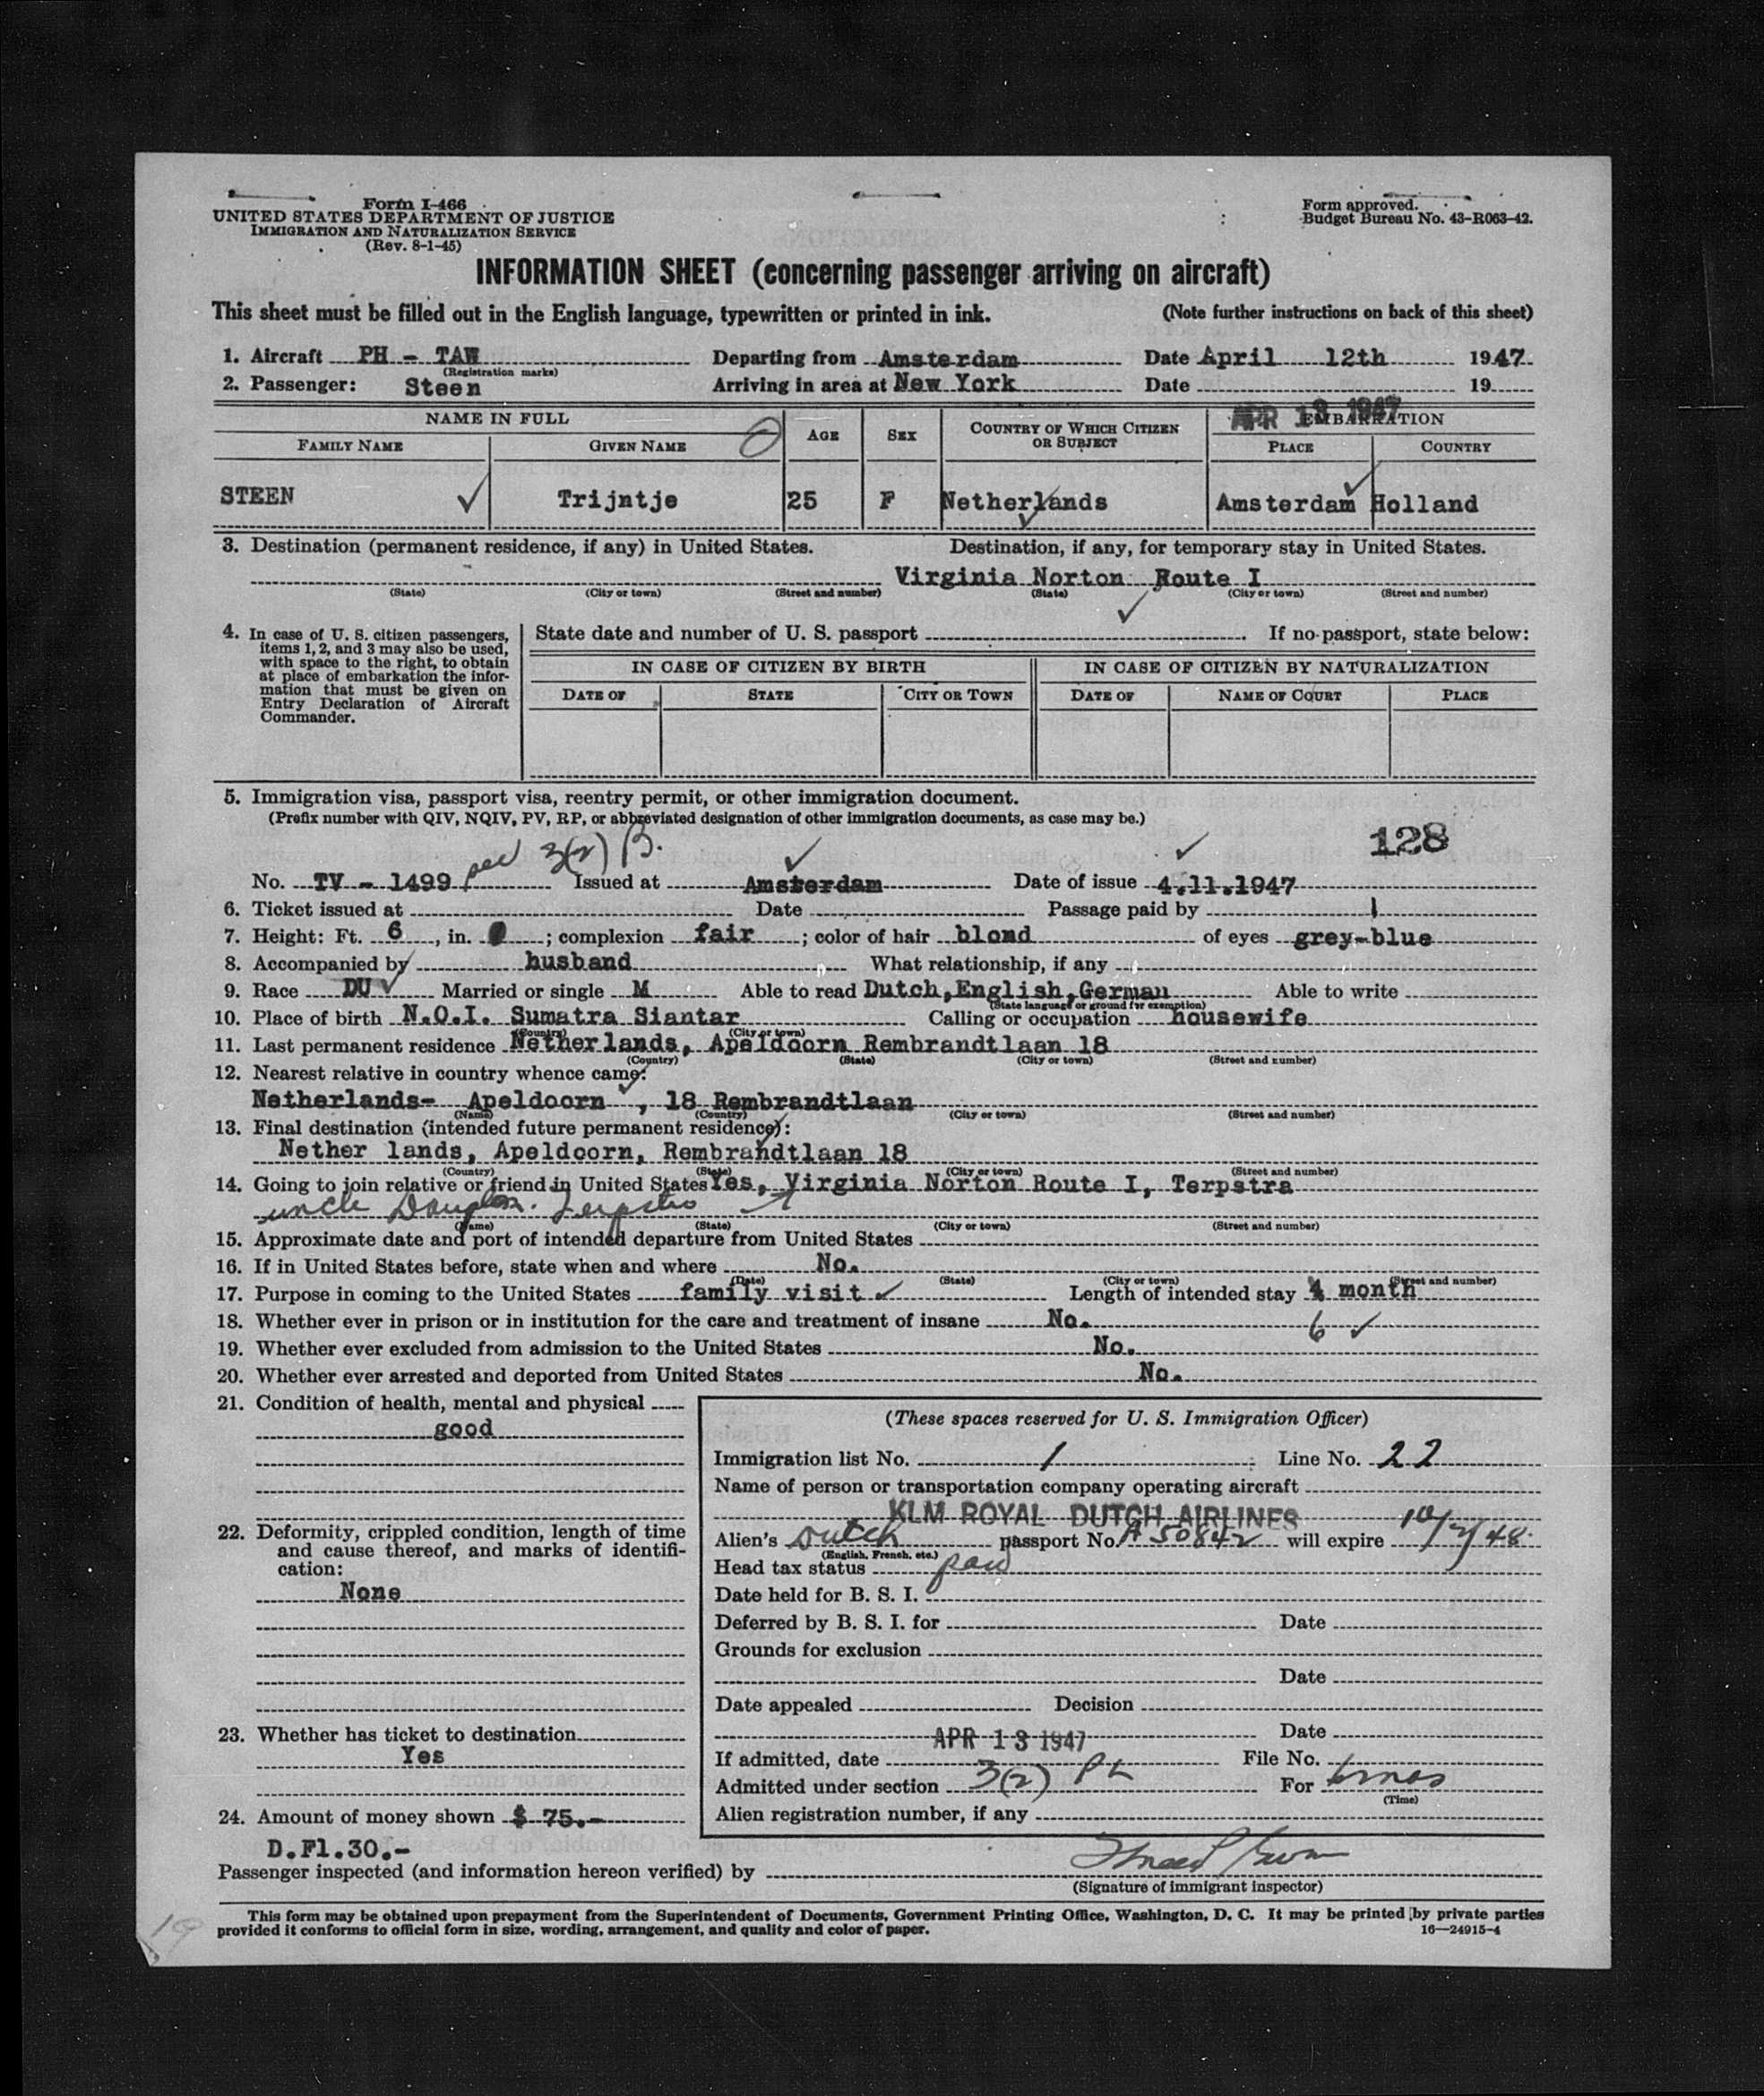 Form I-466
UNITED STATES DEPARTMENT OF JUSTICE
IMMIGRATION AND NATURALIZATION SERVICE
(Rev. 8-1-45)
Form approved.
Budget Bureau No. 43-R063-42.
INFORMATION SHEET (concerning passenger arriving on aircraft)
This sheet must be filled out in the English language, typewritten or printed in ink. (Note further instructions on back of this sheet)
1. Aircraft PH - TAW Departing from Amsterdam Date April 12th 1947
(Registration marks)
2. Passenger: Steen Arriving in area at New York Date 19
APR 13 1947
NAME IN FULL AGE SEX COUNTRY OF WHICH CITIZEN OR SUBJECT EMBARKATION
FAMILY NAME GIVEN NAME PLACE COUNTRY
STEEN Trijntje 25 F Netherlands Amsterdam Holland
3. Destination (permanent residence, if any) in United States. Destination, if any, for temporary stay in United States.
Virginia Norton Route I
(State) (City or town) (Street and number) (State) (City or town) (Street and number)
4. In case of U. S. citizen passengers, items 1, 2, and 3 may also be used, with space to the right, to obtain at place of embarkation the information that must be given on Entry Declaration of Aircraft Commander.
State date and number of U. S. passport . If no passport, state below:
IN CASE OF CITIZEN BY BIRTH IN CASE OF CITIZEN BY NATURALIZATION
DATE OF STATE CITY OR TOWN DATE OF NAME OF COURT PLACE
5. Immigration visa, passport visa, reentry permit, or other immigration document.
(Prefix number with QIV, NQIV, PV, RP, or abbreviated designation of other immigration documents, as case may be.)
3(2) B. 128
No. TV - 1499 Issued at Amsterdam Date of issue 4.11.1947
6. Ticket issued at Date Passage paid by
7. Height: Ft. 6, in. ; complexion fair ; color of hair blond of eyes grey-blue
8. Accompanied by husband What relationship, if any
9. Race DU Married or single M Able to read Dutch,English,German Able to write
(State language or ground for exemption)
10. Place of birth N.O.I. Sumatra Siantar Calling or occupation housewife
(Country) (City or town)
11. Last permanent residence Netherlands, Apeldoorn Rembrandtlaan 18
(Country) (State) (City or town) (Street and number)
12. Nearest relative in country whence came:
Netherlands- Apeldoorn , 18 Rembrandtlaan
(Name) (Country) (City or town) (Street and number)
13. Final destination (intended future permanent residence):
Nether lands, Apeldoorn, Rembrandtlaan 18
(Country) (State) (City or town) (Street and number)
14. Going to join relative or friend in United States Yes, Virginia Norton Route I, Terpstra
uncle Douglas. Terpstra
(Name) (State) (City or town) (Street and number)
15. Approximate date and port of intended departure from United States
16. If in United States before, state when and where No.
(Date) (State) (City or town) (Street and number)
17. Purpose in coming to the United States family visit Length of intended stay 4 month
6
18. Whether ever in prison or in institution for the care and treatment of insane No.
19. Whether ever excluded from admission to the United States No.
20. Whether ever arrested and deported from United States No.
21. Condition of health, mental and physical
good
22. Deformity, crippled condition, length of time and cause thereof, and marks of identification:
None
23. Whether has ticket to destination
Yes
24. Amount of money shown $ 75.-
D.Fl.30.-
(These spaces reserved for U. S. Immigration Officer)
Immigration list No. 1 Line No. 22
Name of person or transportation company operating aircraft
KLM ROYAL DUTCH AIRLINES
Alien's Dutch passport No. A 50842 will expire 10/2/48
(English, French, etc.)
Head tax status paid
Date held for B. S. I.
Deferred by B. S. I. for Date
Grounds for exclusion
Date
Date appealed Decision
Date
APR 13 1947
If admitted, date File No.
Admitted under section 3(2) For 6 mos
(Time)
Alien registration number, if any
Passenger inspected (and information hereon verified) by
(Signature of immigrant inspector)
This form may be obtained upon prepayment from the Superintendent of Documents, Government Printing Office, Washington, D. C. It may be printed by private parties
provided it conforms to official form in size, wording, arrangement, and quality and color of paper. 16—24915-4
19